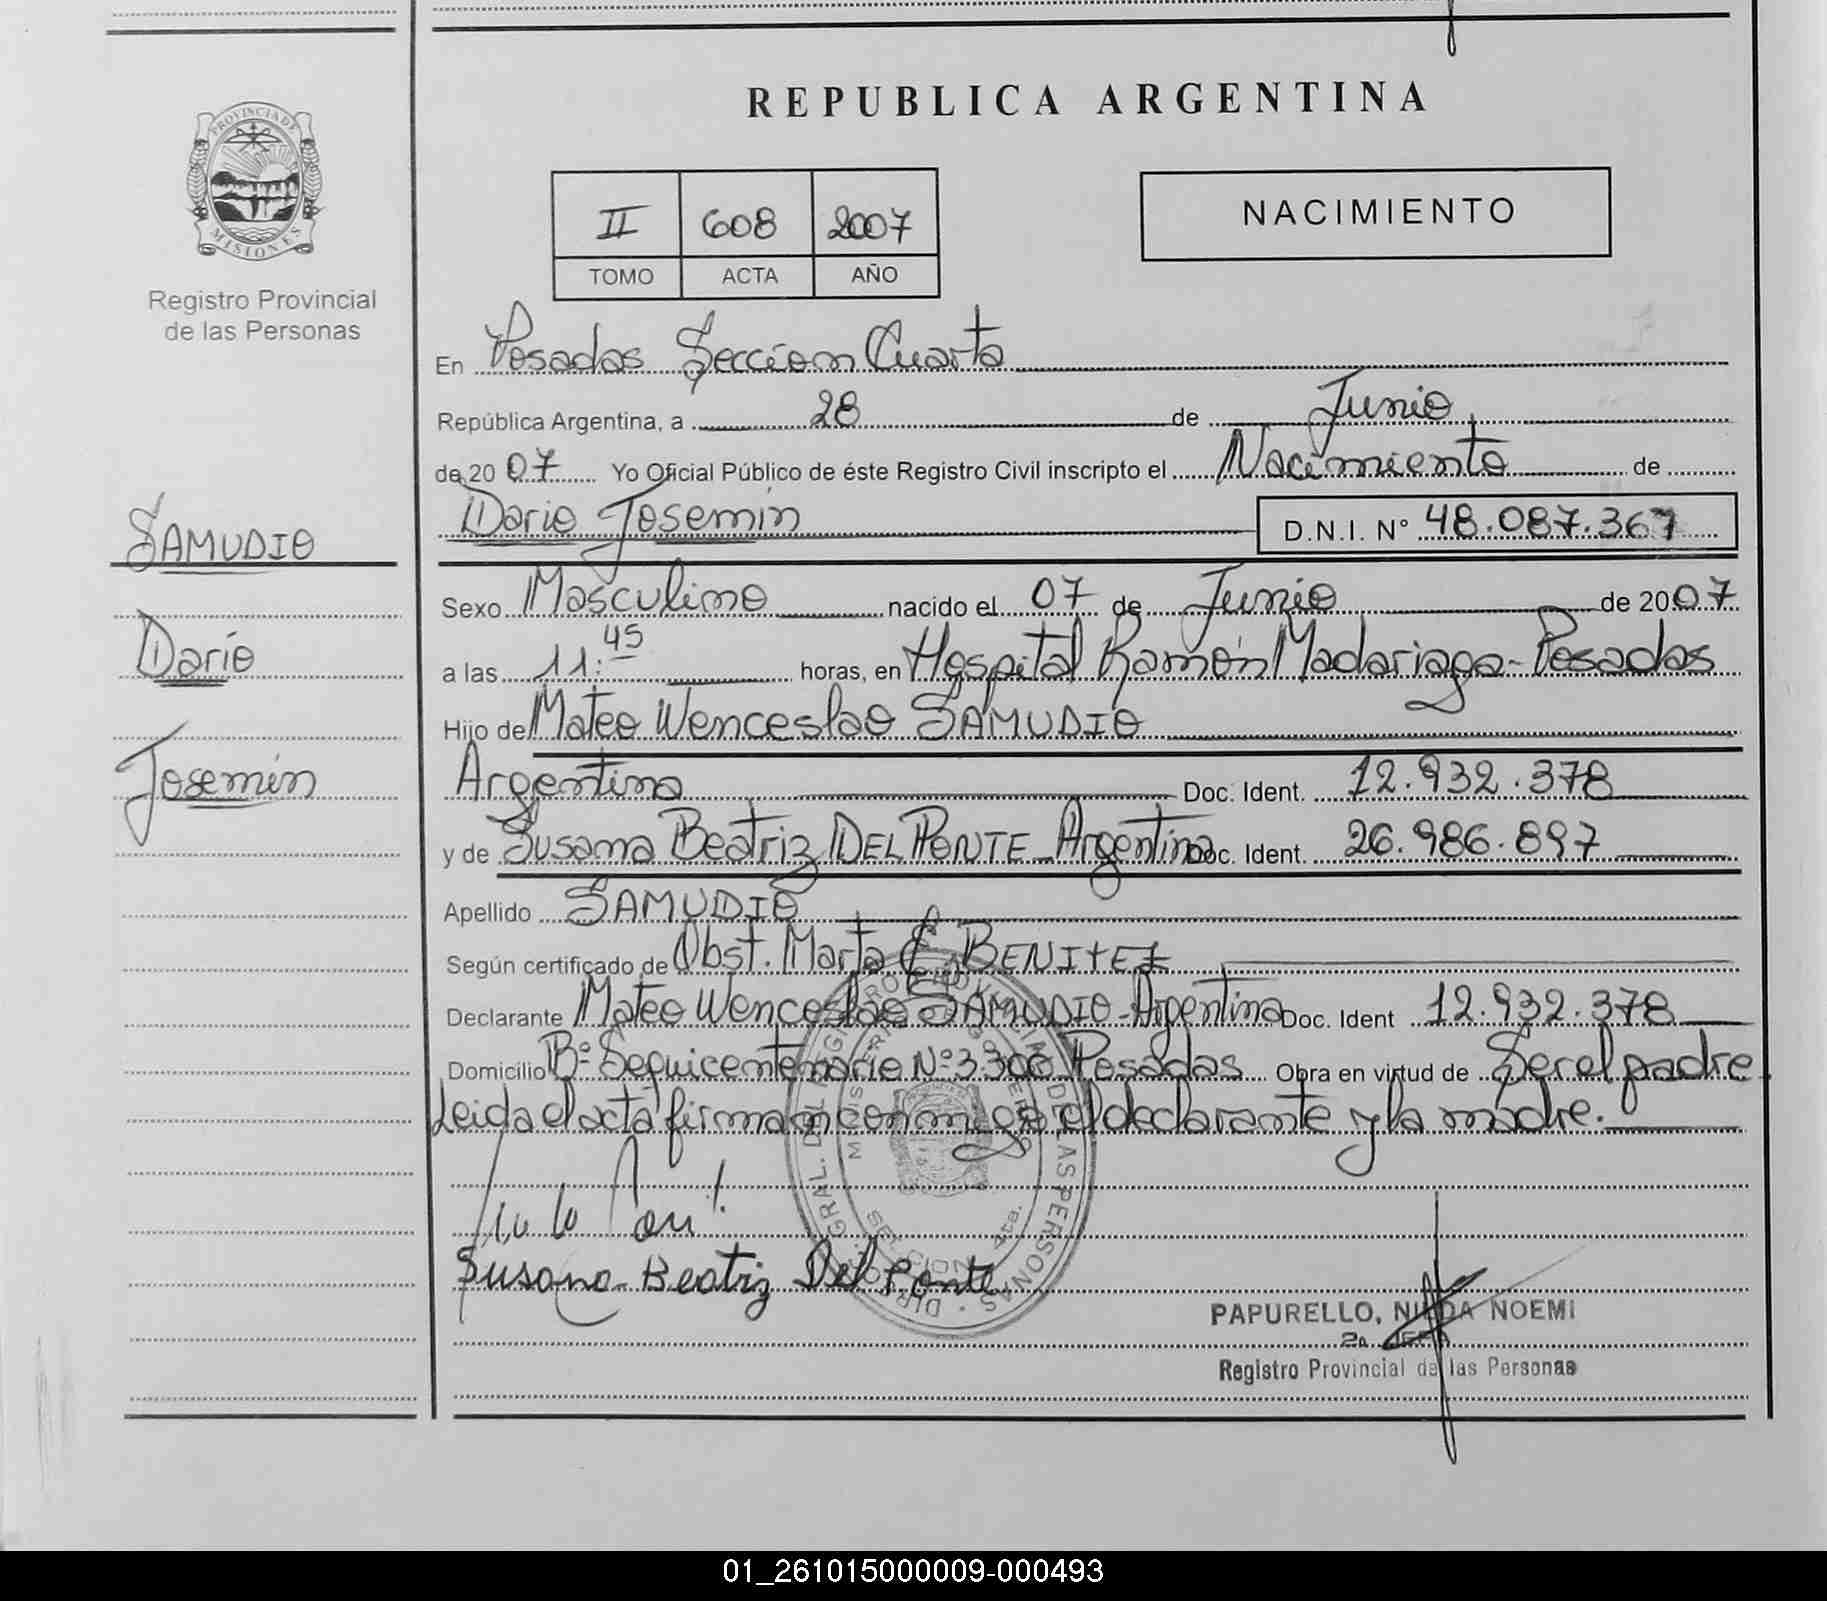 PROVINCIA DE
MISIONES
Registro Provincial
de las Personas
SAMUDIO
Darío
Josemín
REPUBLICA ARGENTINA
II 608 2007
TOMO ACTA AÑO
NACIMIENTO
En Posadas Sección Cuarta
República Argentina, a 28 de Junio
de 2007 Yo Oficial Público de éste Registro Civil inscripto el Nacimiento de
Dario Josemín D.N.I. N° 48.087.367
Sexo Masculino nacido el 07 de Junio de 2007
a las 11:45 horas, en Hospital Ramón Madariaga - Posadas
Hijo de Mateo Wenceslao SAMUDIO
Argentino Doc. Ident. 12.932.378
y de Susana Beatriz DEL PONTE - Argentina Doc. Ident. 26.986.897
Apellido SAMUDIO
Según certificado de Obst. Marta E. BENITEZ
Declarante Mateo Wenceslao SAMUDIO - Argentino Doc. Ident 12.932.378
Domicilio B° Sequicentenario N° 3.306 Posadas Obra en virtud de Ser el padre
Leida el acta firman conmigo el declarante y la madre.
Susana Beatriz Del Ponte
PAPURELLO, NILDA NOEMI
2a JEFA
Registro Provincial de las Personas
01_261015000009-000493